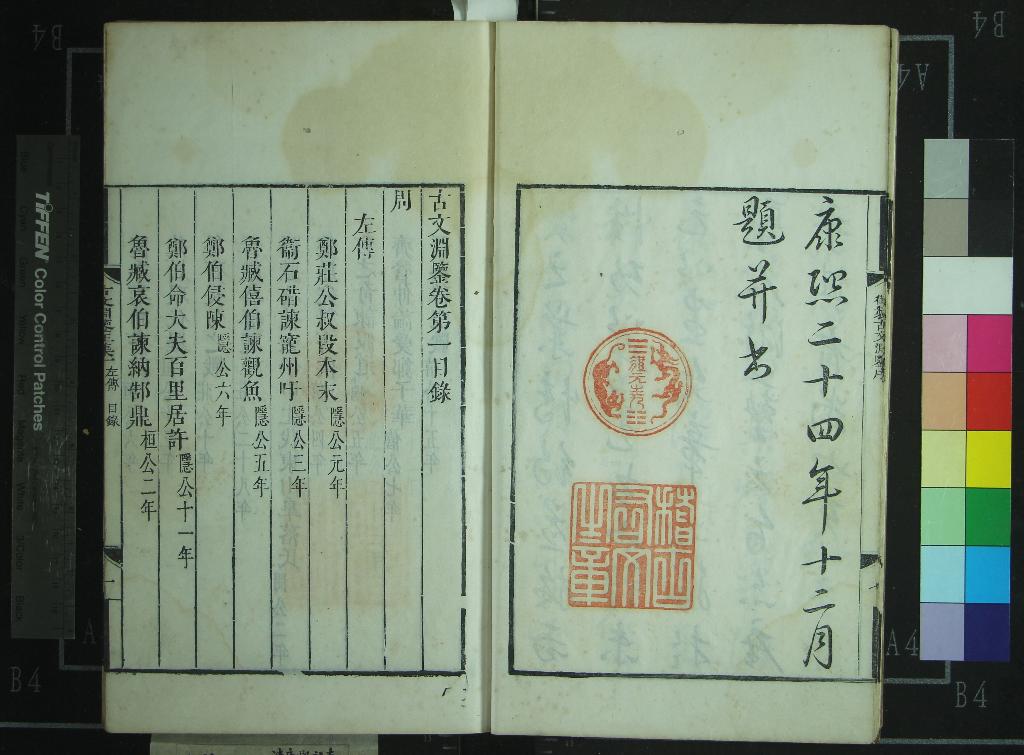 康熙二十四年十二月
題并書
稽古
右文
之章
古文淵鑒卷第一目錄
周
左傳
鄭莊公叔段本末 隱公元年
衞石碏諫寵州吁 隱公三年
魯臧僖伯諫觀魚 隱公五年
鄭伯侵陳 隱公六年
鄭伯命大夫百里居許 隱公十一年
魯臧哀伯諫納郜鼎 桓公二年
左傳 目錄
一
TIFFEN Color Control Patches
Blue
Cyan
Green
Yellow
Red
Magenta
White
3/Color
Black
B4
A4
A4
B4
B4
A4